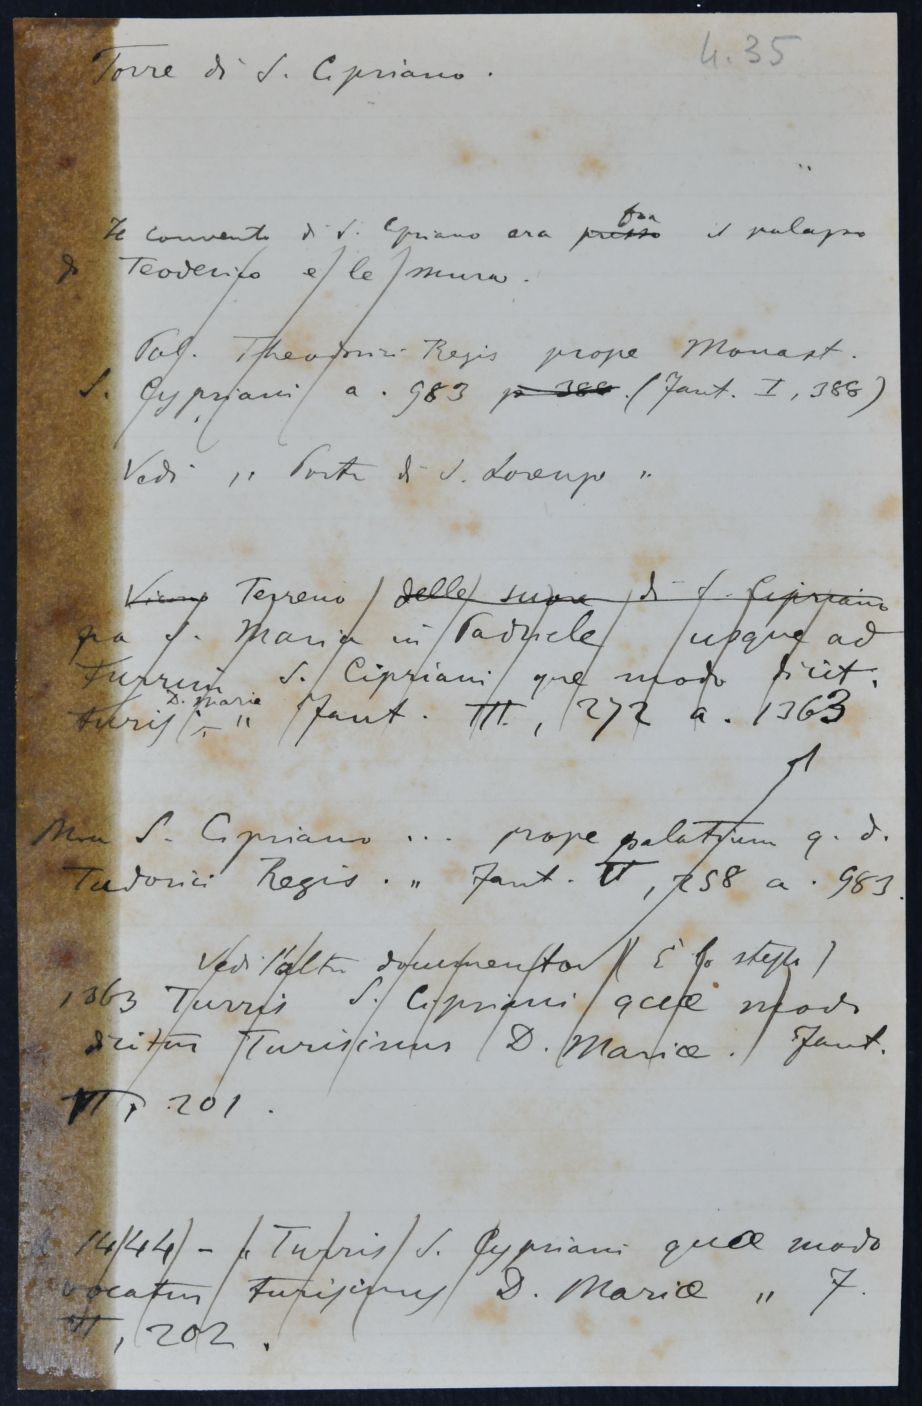 4.35
Torre di S. Cipriano.
Il convento di S. Cipriano era presso fra il palazzo
di Teoderico e le mura.
Pal. Theodorici Regis prope Monast.
S. Cypriani a. 983 p. 388. (Fant. I, 388)
Vedi ,, Porta di S. Lorenzo "
Vicino Terreno delle suore di S. Cipriano
S. Maria in Padricle usque ad
Turrim S. Cipriani que modo dicit.
D. Marie
" Fant. III, 272 a. 1363
Mon S. Cipriano ... prope palatium q. d.
Tudorici Regis. " Fant. II, 258 a. 983.
Vedi l'altro documento (È lo stesso)
1363 Turris S. Cipriani quæ modo
dicitur Turisinus D. Mariæ. Fant.
VI, 201.
1444 - ,, Turris S. Cypriani quæ modo
vocatur turisinus D. Mariæ " F.
VI, 202.